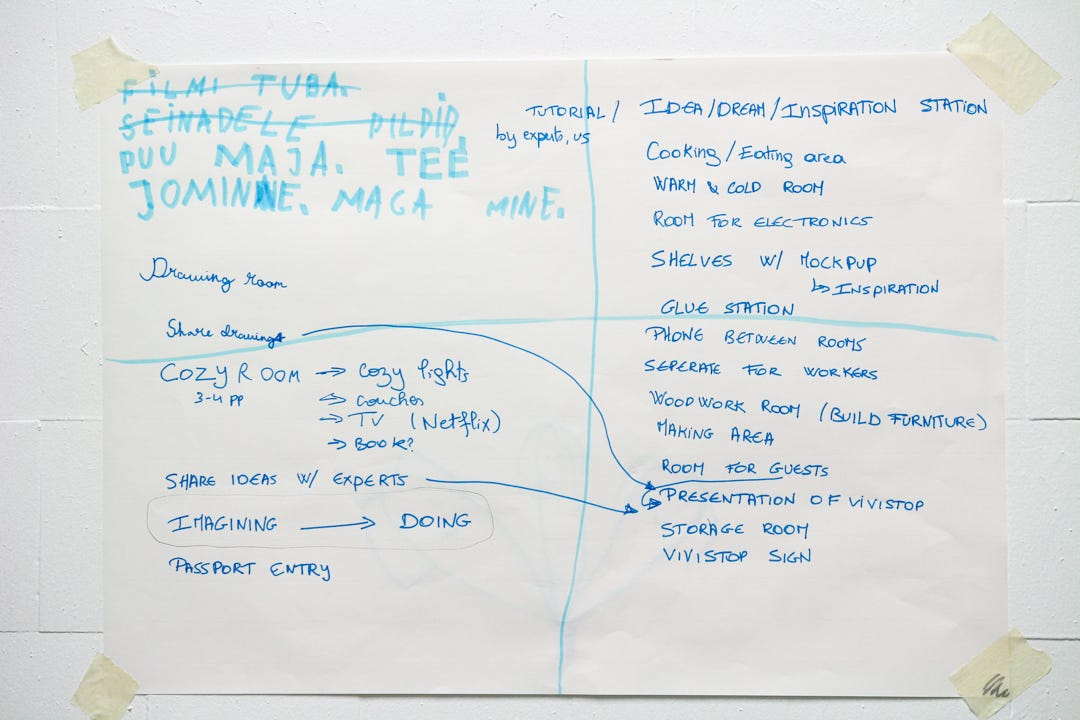 FILMI TUBA.
SEINADELE PILDID.
PUU MAJA. TEE
JOMINNE. MAGA MINE.
Drawing room
Share drawings
COZY ROOM → cozy lights
3-4 pp
→ couches
→ TV (Netflix)
→ BOOK?
SHARE IDEAS W/ EXPERTS
IMAGINING → DOING
PASSPORT ENTRY
TUTORIAL/ IDEA/DREAM/INSPIRATION STATION
by experts, us
Cooking/Eating area
WARM & COLD ROOM
ROOM FOR ELECTRONICS
SHELVES W/ MOCKPUP
↳ INSPIRATION
GLUE STATION
PHONE BETWEEN ROOMS
SEPERATE FOR WORKERS
WOODWORK ROOM (BUILD FURNITURE)
MAKING AREA
ROOM FOR GUESTS
PRESENTATION OF VIVISTOP
STORAGE ROOM
VIVISTOP SIGN